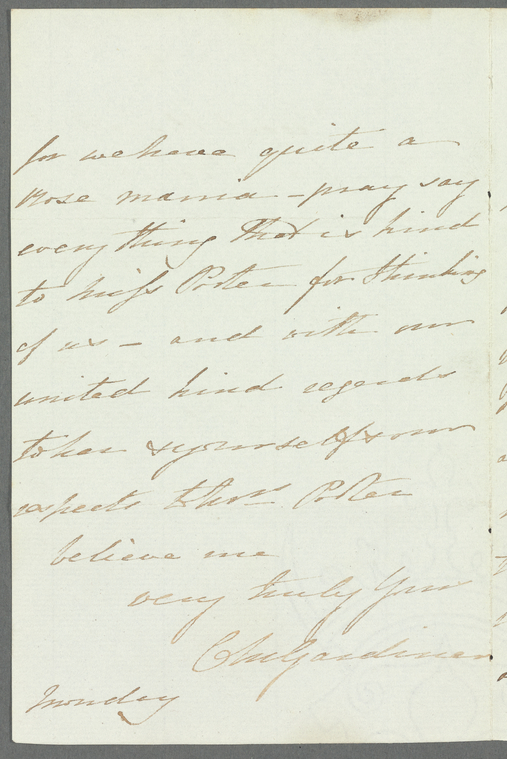 for we have quite a
Rose mania - pray say
every thing that is kind
to Miss Porter for thinking
of us - and with our
united kind regards
to her & yourself & our
respects to Mrs Porter
believe me
very truly Yours
Gardiner
Monday